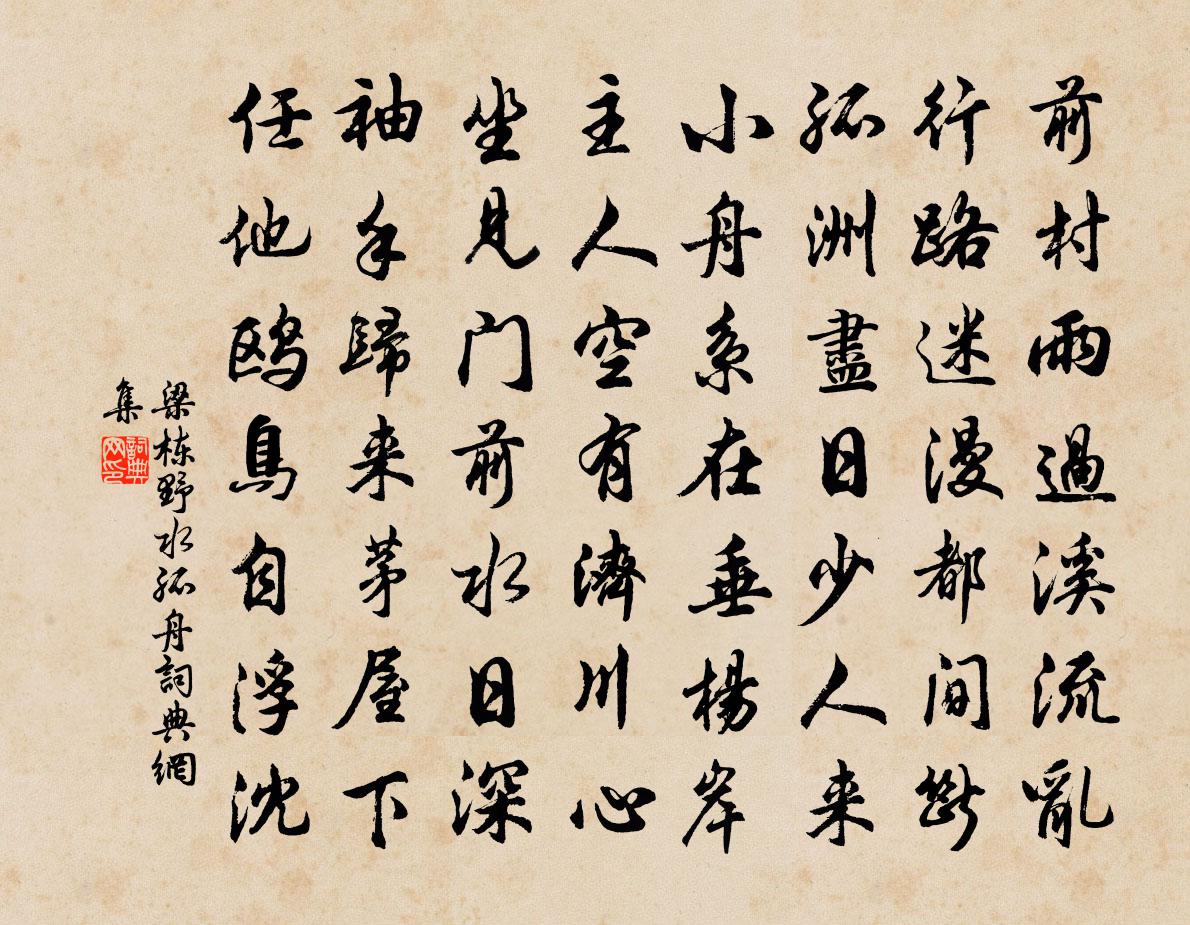 前村雨過溪流亂
行路迷漫都間斷
孤洲盡日少人来
小舟系在垂楊岸
主人空有濟川心
坐見门前水日深
袖手歸来茅屋下
任他鸥鳥自浮沈
梁栋野水孤舟詞典網
集
詞典
网印